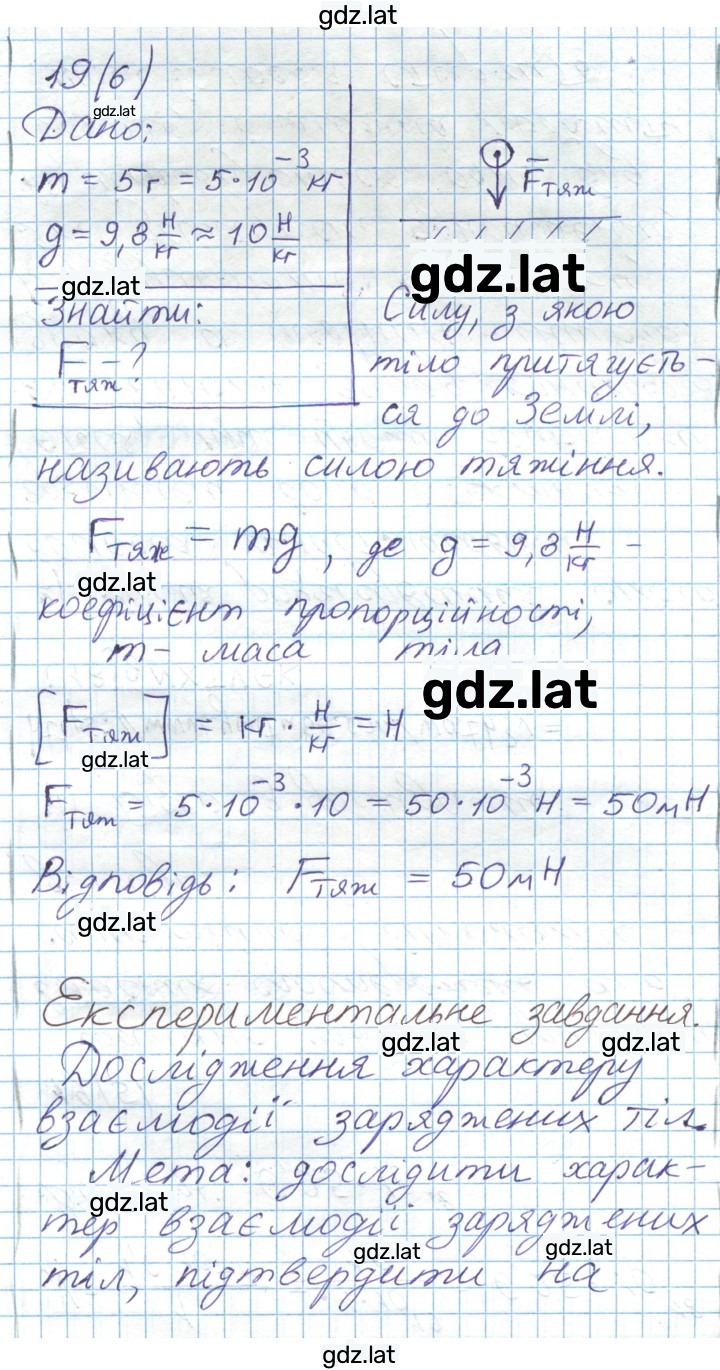 gdz.lat
19(6)
gdz.lat
Дано:
m = 5г = 5·10⁻³ кг
g = 9,8 Н/кг ≈ 10 Н/кг
gdz.lat
Знайти:
Fтяж - ?
F̅тяж
gdz.lat
Силу, з якою
тіло притягуєть-
ся до Землі,
називають силою тяжіння.
Fтяж = mg, де g = 9,8 Н/кг –
gdz.lat
коефіцієнт пропорційності,
m – маса тіла
gdz.lat
[Fтяж] = кг · Н/кг = Н
gdz.lat
Fтяж = 5·10⁻³·10 = 50·10⁻³ Н = 50мН
Відповідь: Fтяж = 50мН
gdz.lat
Експериментальне завдання.
gdz.lat gdz.lat
Дослідження характеру
взаємодії заряджених тіл.
Мета: дослідити харак-
gdz.lat
тер взаємодії заряджених
gdz.lat gdz.lat
тіл, підтвердити на
gdz.lat